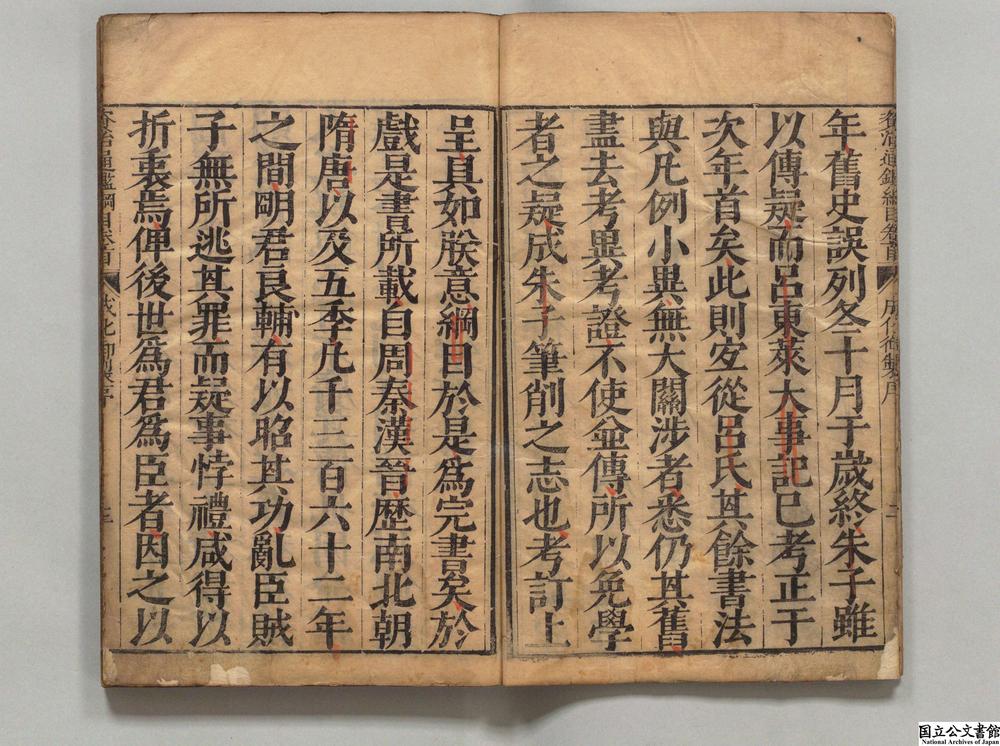 年舊史誤列冬十月于歲終朱子雖
以傳疑而呂東萊大事記已考正于
次年首矣此則宜從呂氏其餘書法
與凡例小異無大關涉者悉仍其舊
盡去考異考證不使並傳所以免學
者之疑成朱子筆削之志也考訂上
呈具如朕意綱目於是為完書矣於
戲是書所載自周秦漢晉歷南北朝
隋唐以及五季凡千三百六十二年
之間明君良輔有以昭其功亂臣賊
子無所逃其罪而疑事悖禮咸得以
折衷焉俾後世為君為臣者因之以
資治通鑑綱目卷首
成化御製序
二
三
国立公文書館
National Archives of Japan